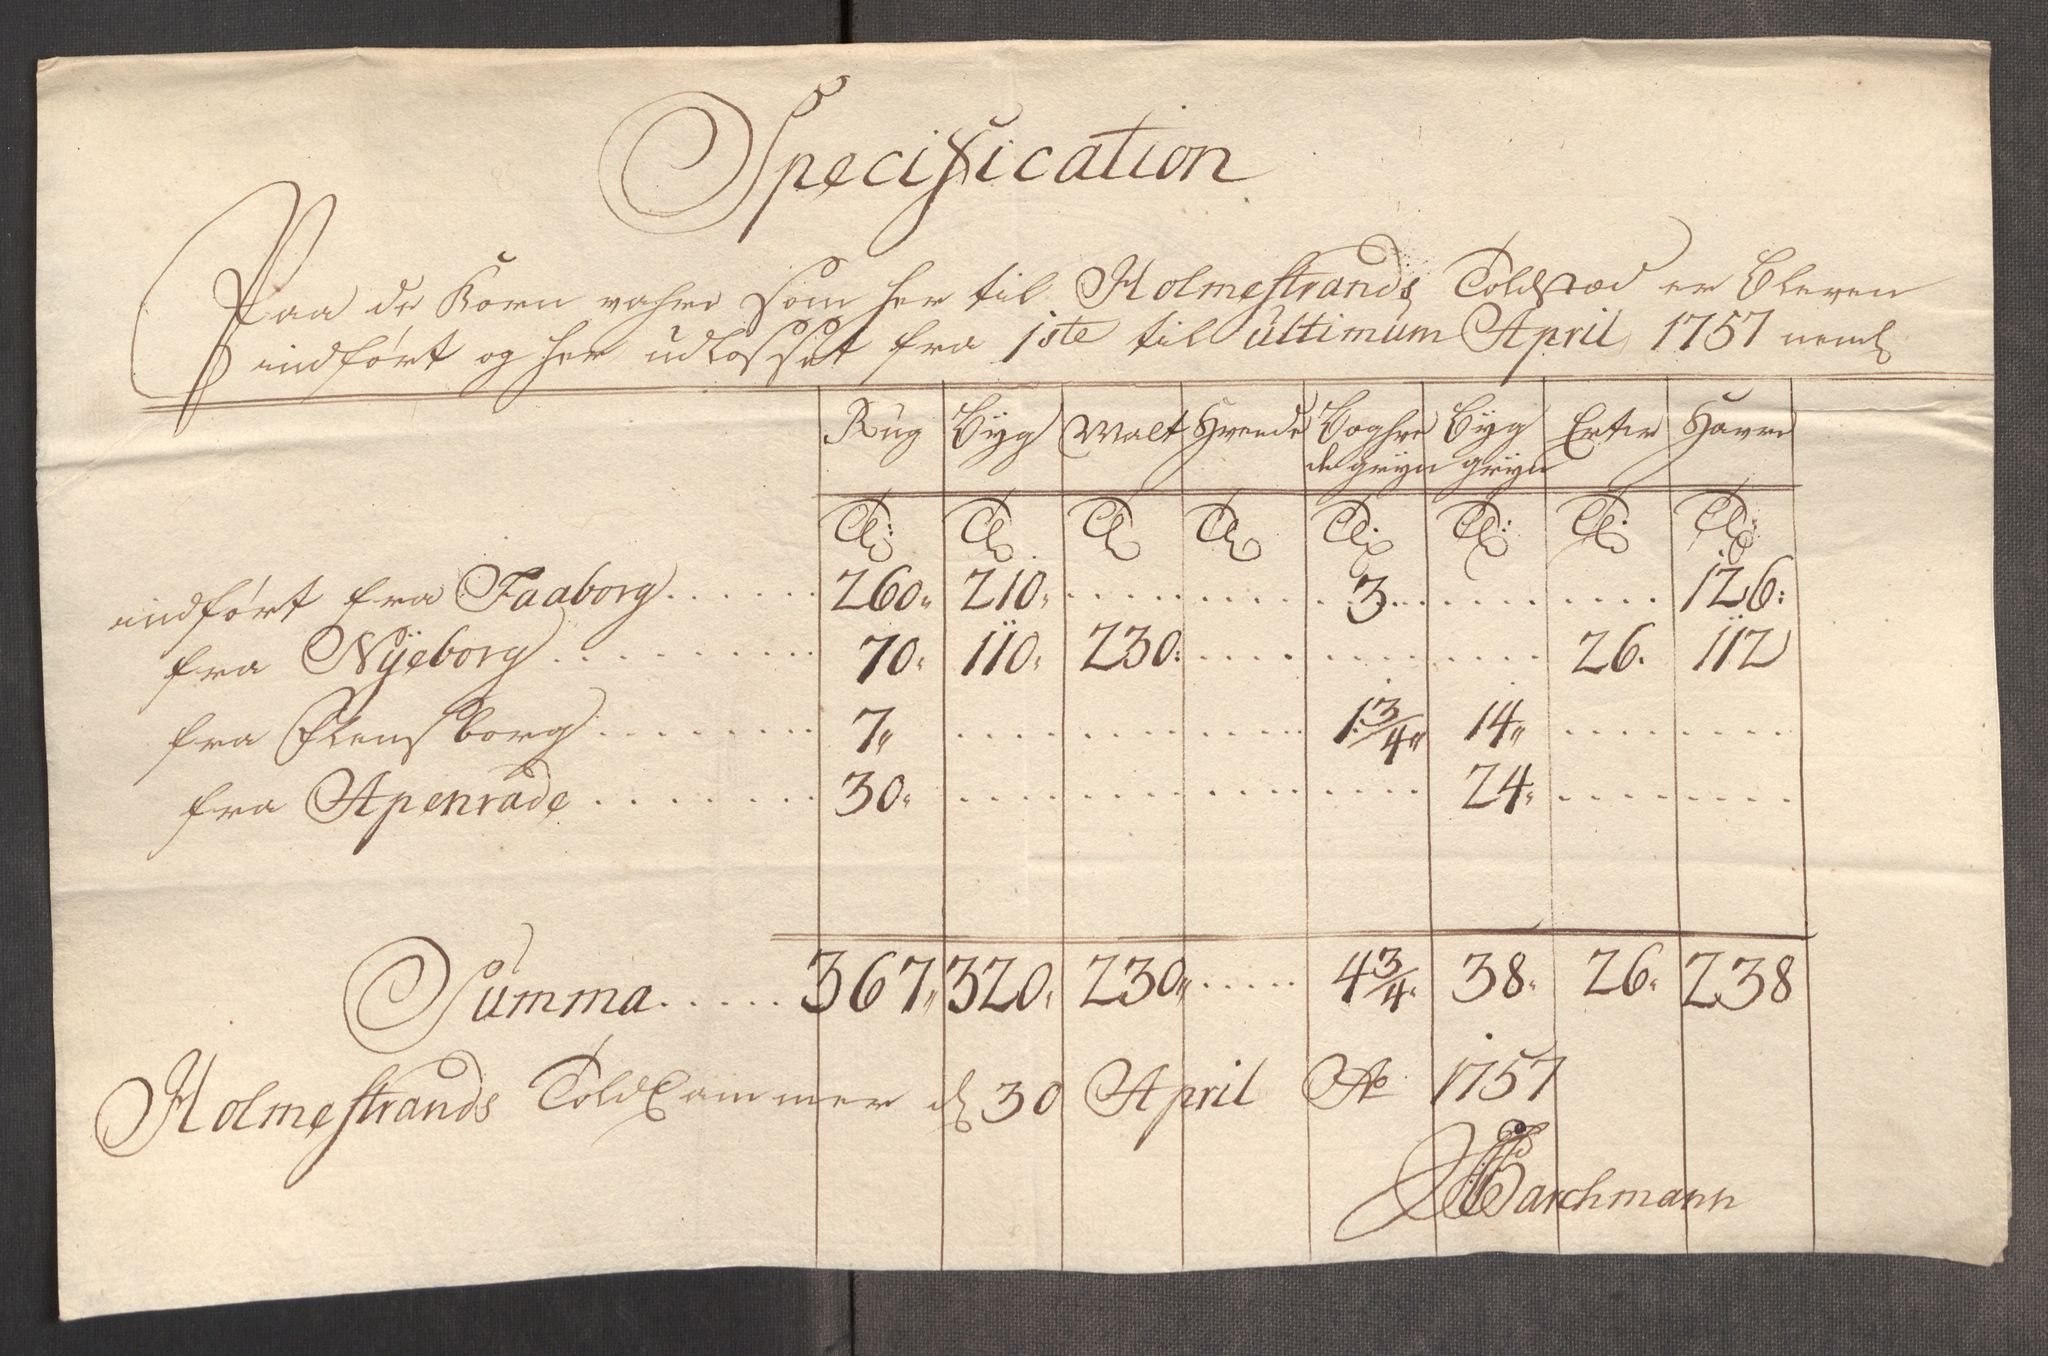 Specification
Paa de Korn vahre som her til Holmestrands Toldstæd er bleven
indført og her udlosset fra 1ste til ultimum April 1757 neml
Rug Byg Malt Hvede Boghve Byg Erter Havre
de gryn gryn
Tr: Tr Tr Tr Tr: Tr: Tr: Tr:
indført fra Faaborg ...... 260" 210" ........ 3 ........ 126:
fra Nÿeborg ........ 70" 110" 230: ........ 26. 112
fra Flensborg ........ 7" ........ 1 3/4" 14" ........
fra Apenrade ........ 30" ........ 24" ........
Summa ..... 367" 320" 230" ..... 4 3/4" 38" 26" 238
Holmestrands Toldkammer d 30 April Ao 1757
Barchmann